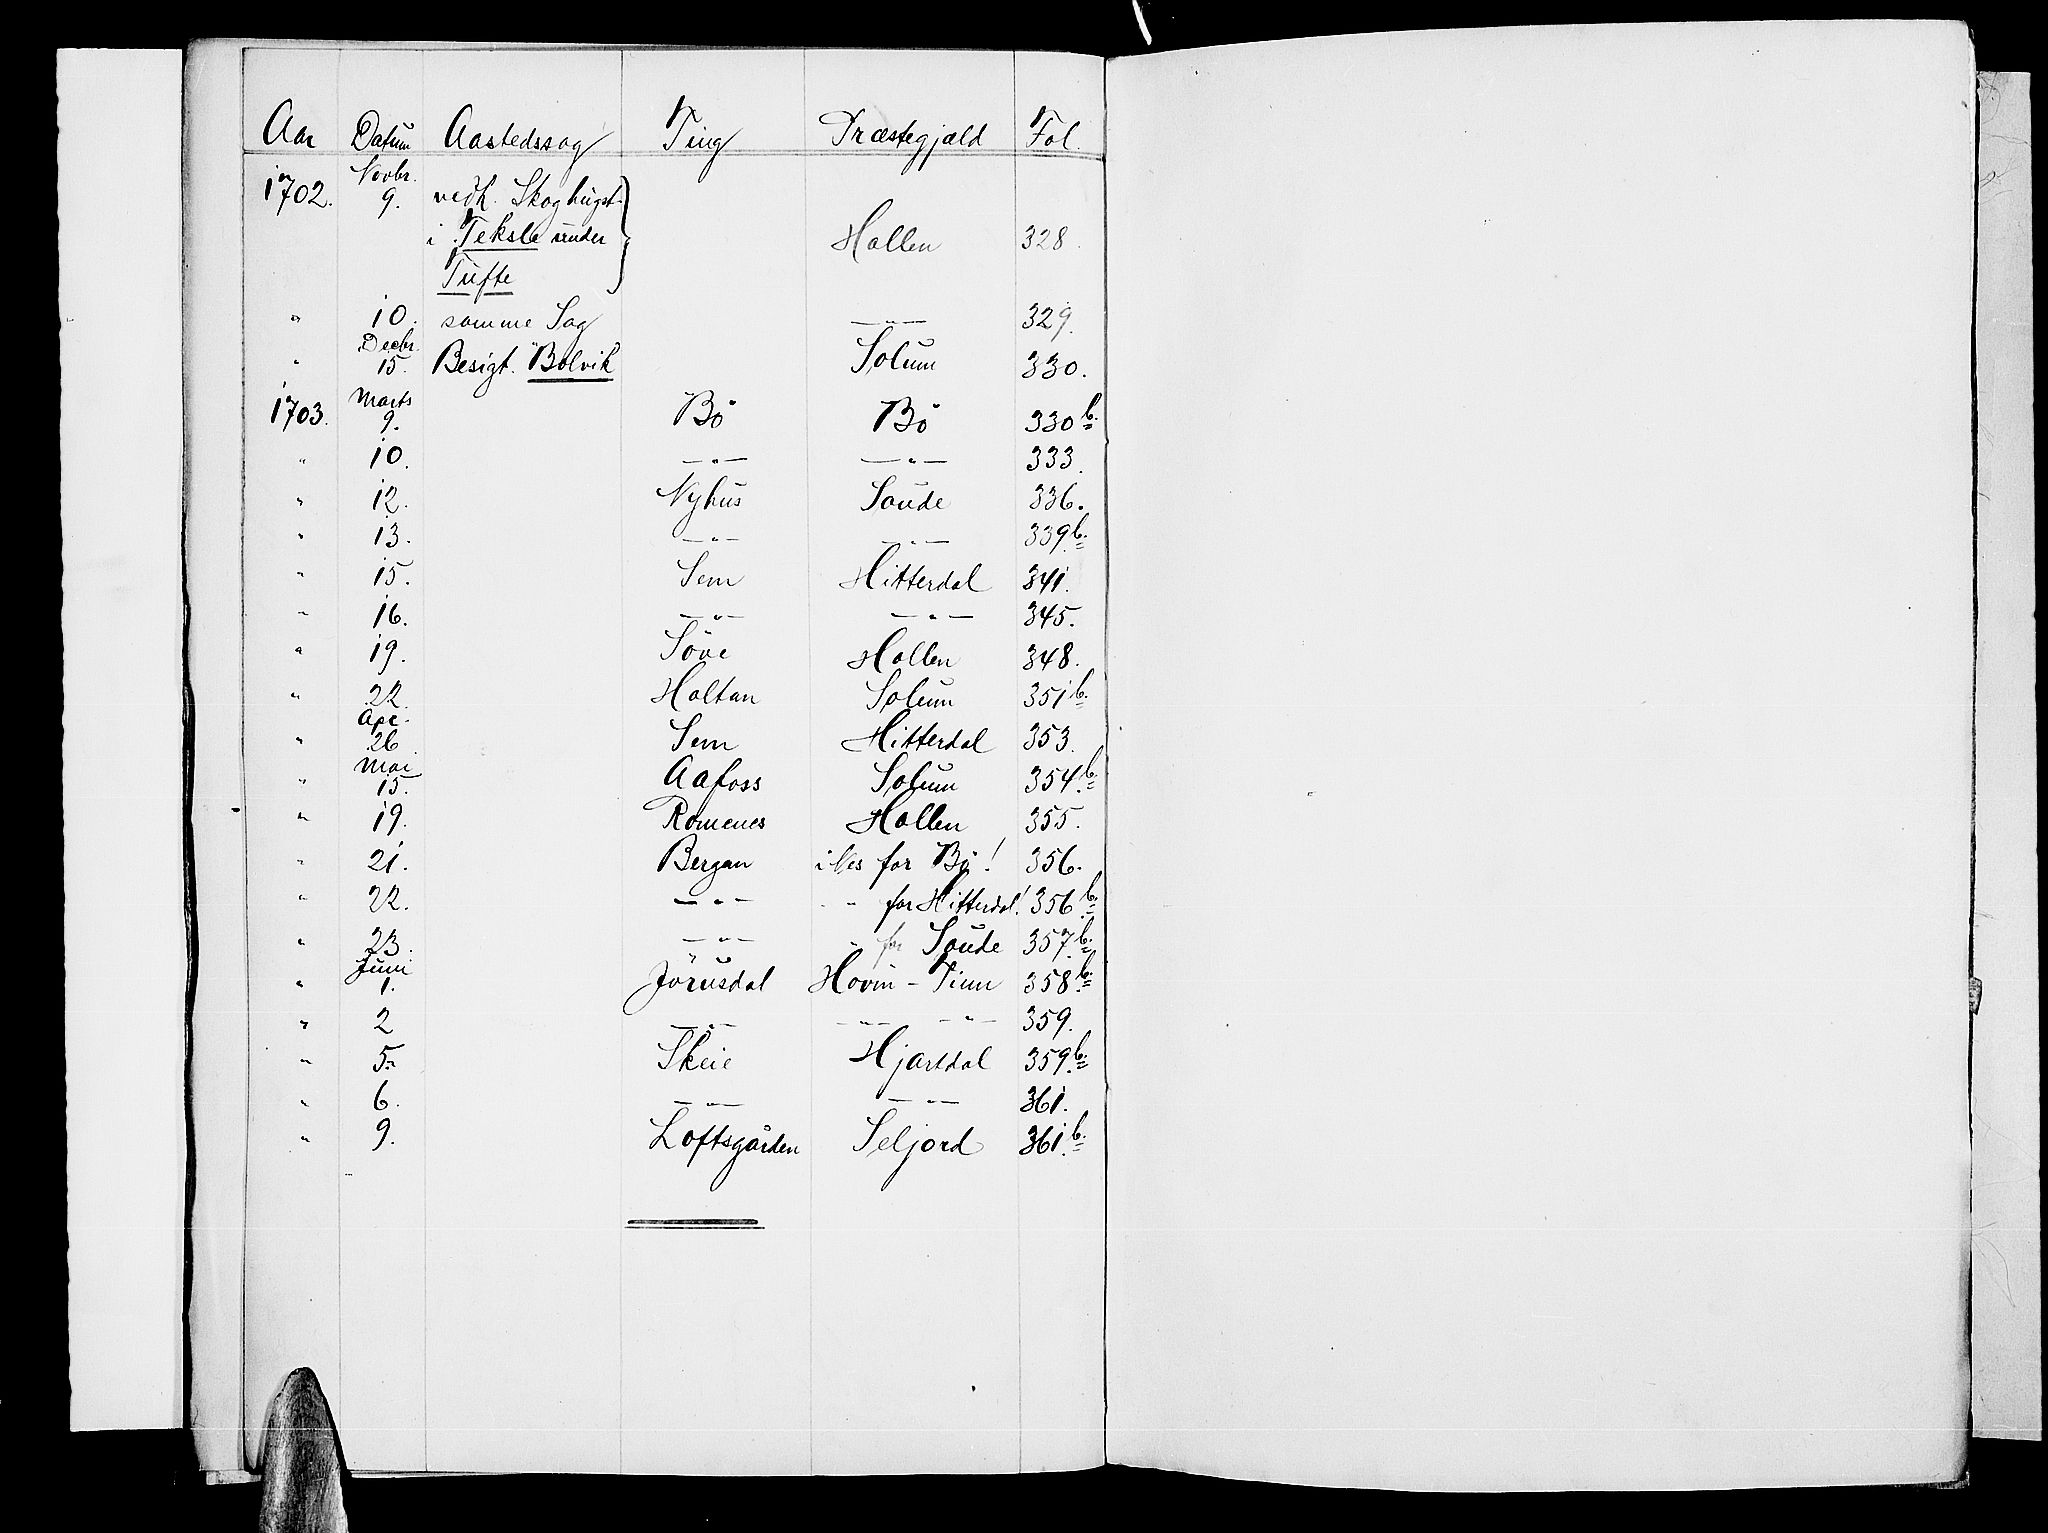 Aar Datum Aastedssag Ting Præstegjæld Fol.
Novbr.
1702. 9. vedk. Skoghugst
i Teksle under Hollen 328.
Tufte
" 10. samme Sag — " — 329.
Decbr.
" 15. Besigt. Bolvik Solum 330.
Marts
1703. 9. Bö Bö 330 b.
" 10. — " — — " — 333.
" 12. Nyhus Saude 336.
" 13. — " — — " — 339 b.
" 15. Sem Hitterdal 341.
" 16. — " — — " — 345.
" 19. Söve Hollen 348.
" 22. Holtan Solum 351 b.
Apr.
" 26. Sem Hitterdal 353.
Mai
" 15. Aafoss Solum 354 b.
" 19. Romenes Hollen 355.
" 21. Bergan i Nes for Bö! 356.
" 22. — " — " " for Hitterdal! 356 b.
" 23. — " — " for Saude 357 b.
Juni
" 1. Jörusdal Hovin - Tinn 358 b.
" 2 — " — — " — — " — 359.
" 5. Skeie Hjartdal 359 b.
" 6. — " — — " — 361.
" 9. Loftsgården Seljord 361 b.